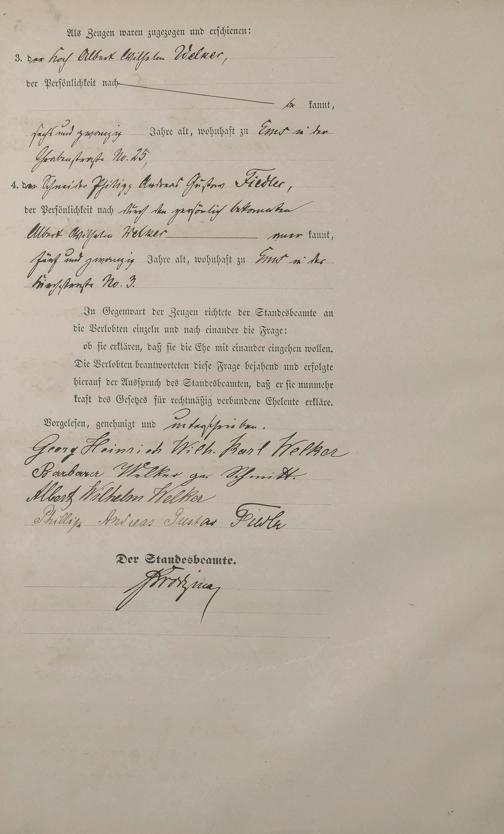 Als Zeugen waren zugezogen und erschienen:
3. der Koch Albert Wilhelm Welker,
der Persönlichkeit nach
be kannt,
sechs und zwanzig Jahre alt, wohnhaft zu Ems in der
Grabenstraße No. 25,
4. der Schneider Philipp Andreas Gustav Fiedler,
der Persönlichkeit nach durch den persönlich bekannten
Albert Wilhelm Welker aner kannt,
fünf und zwanzig Jahre alt, wohnhaft zu Ems in der
Kirchstraße No. 3.
In Gegenwart der Zeugen richtete der Standesbeamte an
die Verlobten einzeln und nach einander die Frage:
ob sie erklären, daß sie die Ehe mit einander eingehen wollen.
Die Verlobten beantworteten diese Frage bejahend und erfolgte
hierauf der Ausspruch des Standesbeamten, daß er sie nunmehr
kraft des Gesetzes für rechtmäßig verbundene Eheleute erkläre.
Vorgelesen, genehmigt und unterschrieben.
Georg Heinrich Wilh. Karl Welker
Barbara Welker geb Schmitt.
Albert Wilhelm Welker
Phillip Andreas Gustav Fiedler
Der Standesbeamte.